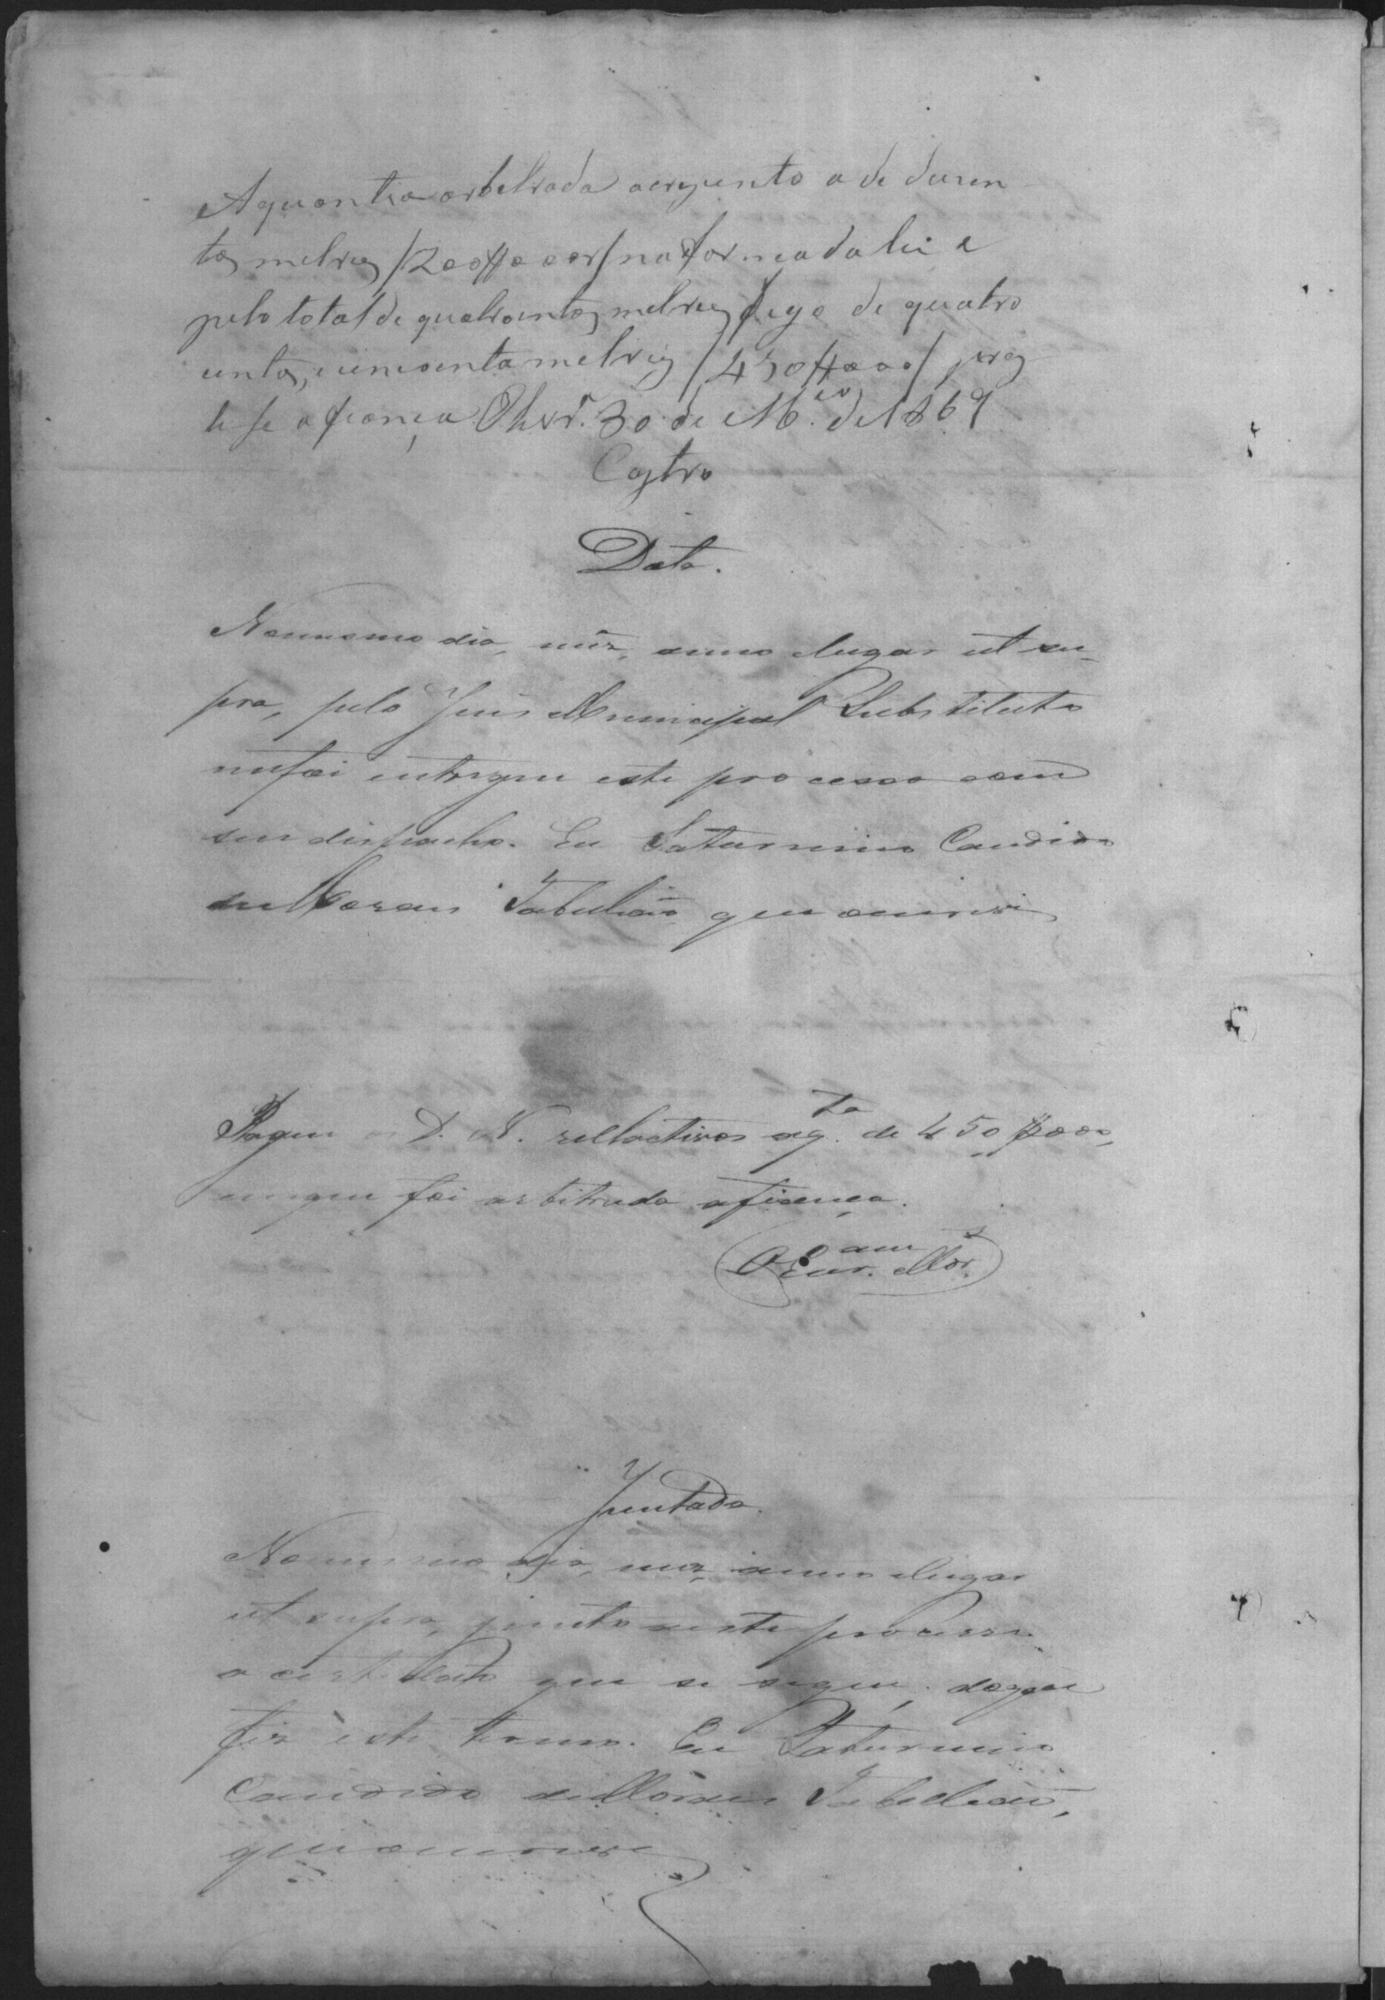 A quantia arbitrada acrescento a de duzen
tos mil reis /200#000rs/ na forma da lei e
pelo total de quatrocentos mil reis digo de quatro
centos, cincoenta mil reis /450#000/ pres
te se a fiança 30 de M.ço de 1869
Castro
Data.
No mesmo dia, mez, anno e lugar ut su-
pra, pelo Juis Municipal Substituto
me foi entregue este processo com
seu despacho. Eu Saturnino Candido
de Moraes Tabelião que escrevi
Pagou D. N. rellactivos a q.ta de 450$000,
em que foi arbitrada a fiança.
O Escr.am Mor.s
Juntada.
No mesmo dia, mez anno e lugar
ut supra, junto a este processo
a certidão que se segue; do que
fiz este termo. Eu Saturnino
Candido de Moraes Tabelião,
que escrevi